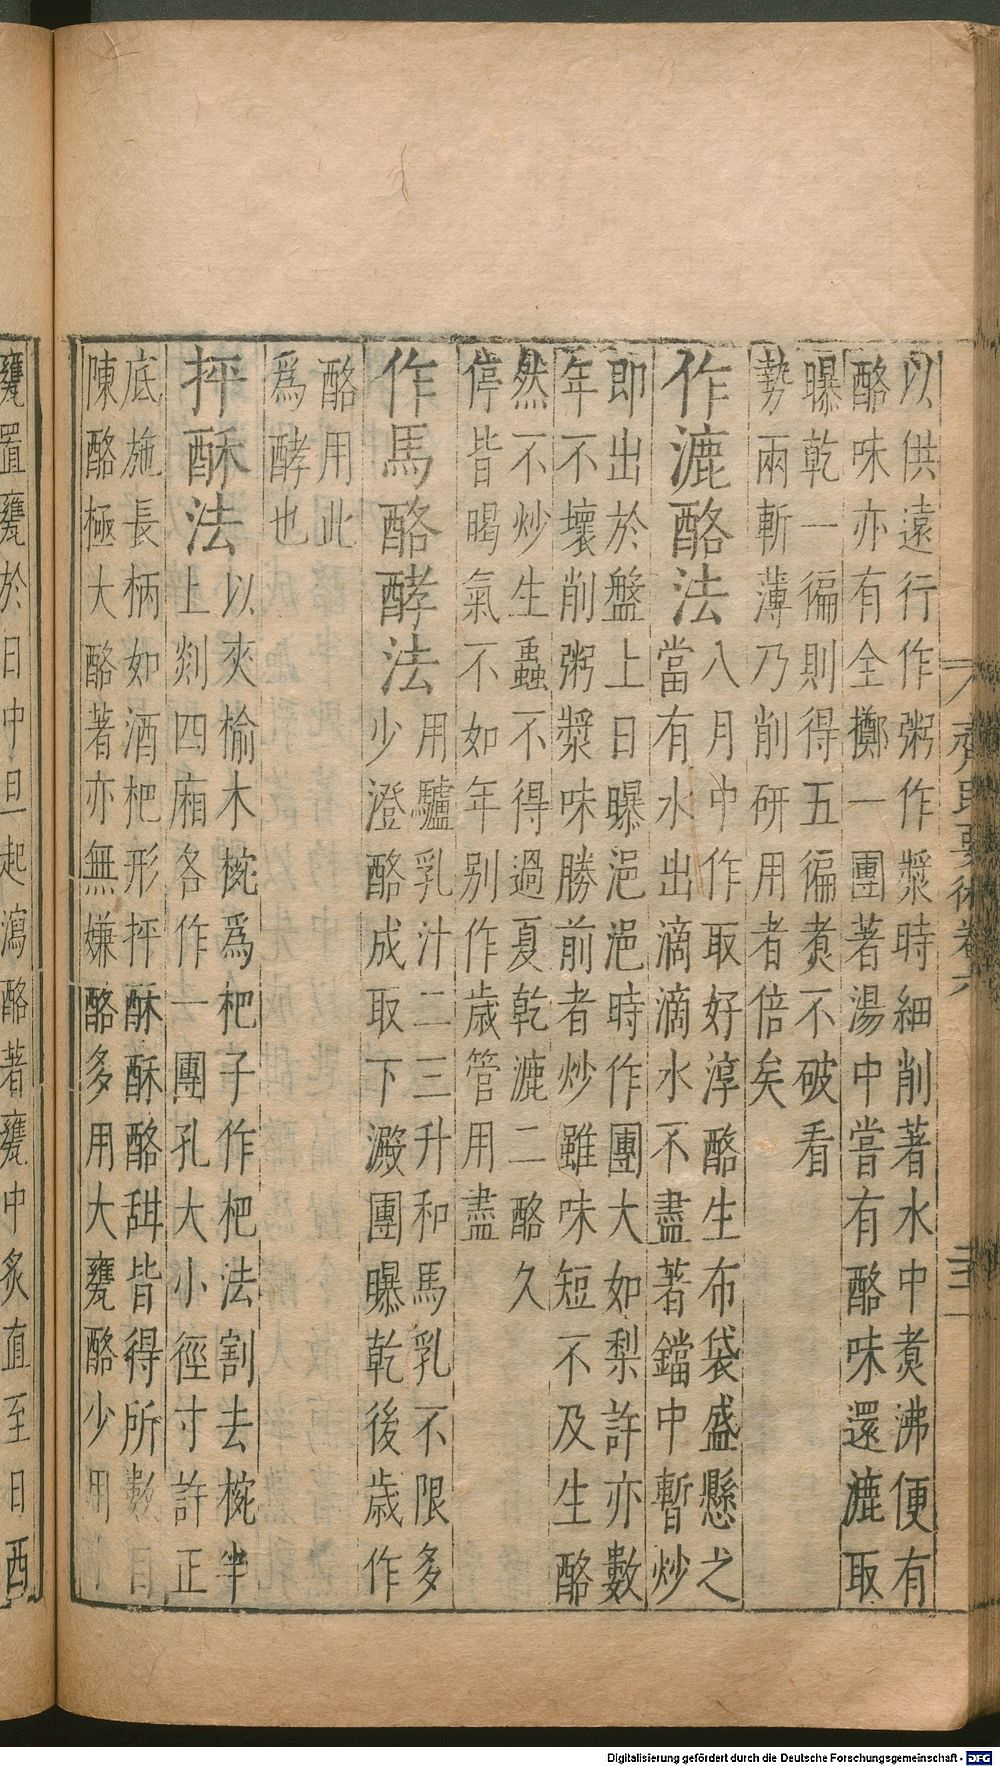 齊民要術卷六
以供遠行作粥作漿時細削著水中煑沸便有
酪味亦有全擲一團著湯中嘗有酪味還漉取
曝乾一徧則得五徧煑不破看
勢兩斬薄乃削研用者倍矣
作漉酪法八月中作取好淳酪生布袋盛懸之
當有水出滴滴水不盡著鐺中暫炒
即出於盤上日曝浥浥時作團大如梨許亦數
年不壞削粥漿味勝前者炒雖味短不及生酪
然不炒生蟲不得過夏乾漉二酪久
停皆暍氣不如年别作歲管用盡
作馬酪酵法用驢乳汁二三升和馬乳不限多
少澄酪成取下澱團曝乾後歲作
酪用此
爲酵也
抨酥法以夾榆木椀爲杷子作杷法割去椀半
上剡四廂各作一團孔大小徑寸許正
底施長柄如酒杷形抨酥酥酪甜皆得所數日
陳酪極大酪著亦無嫌酪多用大甕酪少用
甕置甕於日中旦起瀉酪著甕中炙直至日西
Digitalisierung gefördert durch die Deutsche Forschungsgemeinschaft - DFG